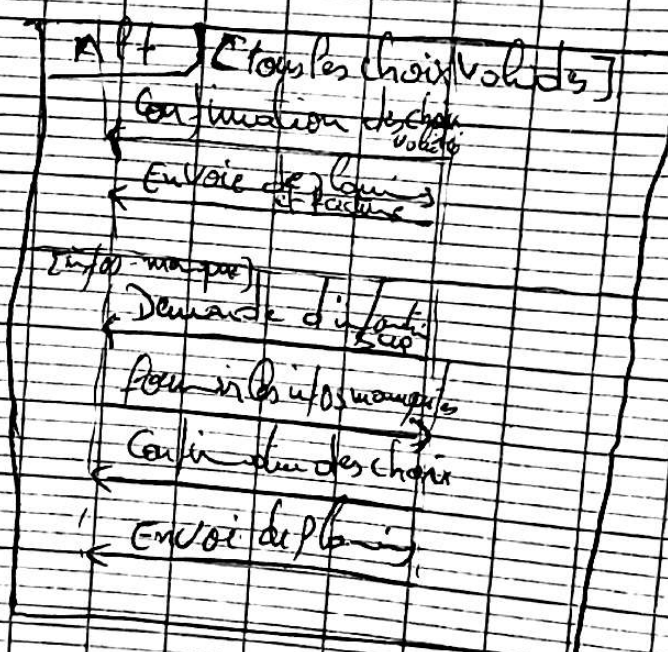 Alt [tous les choix valides]
Confirmation des choix
validés
Envoie de planning
et facture
[infos manque]
Demande d'info
sup
fournir les infos manquantes
Confirmation des choix
Envoi du planning